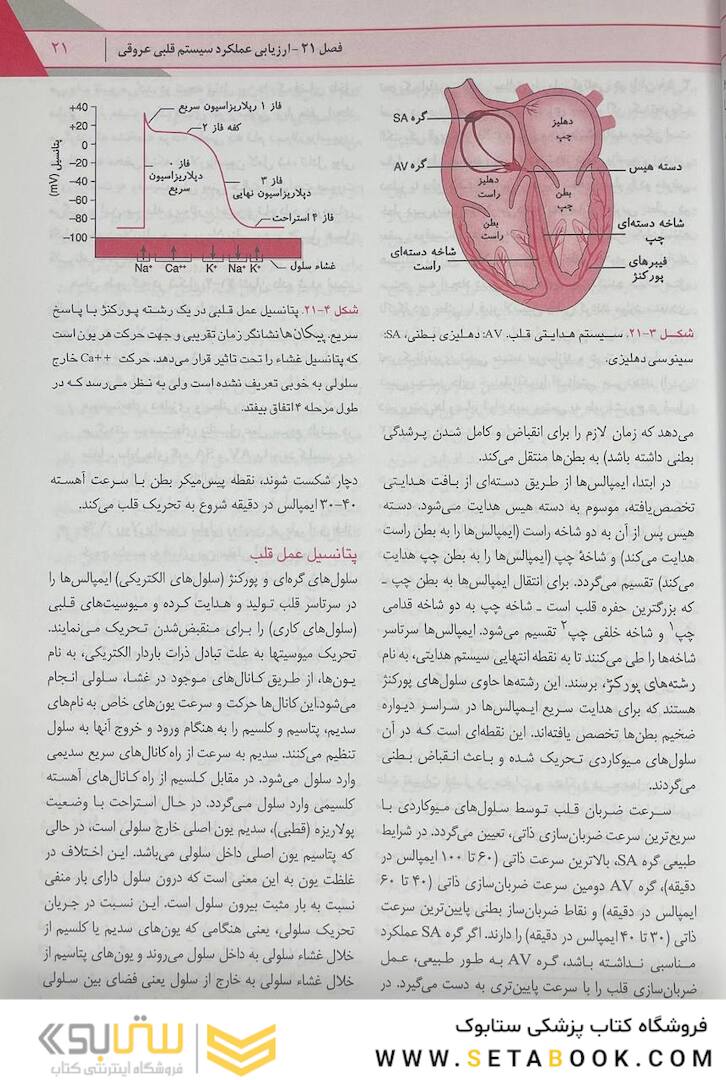 فصل ۲۱ - ارزیابی عملکرد سیستم قلبی عروقی
۲۱
گره SA
گره AV
دهلیز
چپ
دهلیز
راست
بطن
چپ
بطن
راست
دسته هیس
شاخه دسته‌ای
چپ
فیبرهای
پورکنژ
شاخه دسته‌ای
راست
شکل ۳-۲۱. سیستم هدایتی قلب. AV: دهلیزی بطنی، SA:
سینوسی دهلیزی.
می‌دهد که زمان لازم را برای انقباض و کامل شدن پرشدگی
بطنی داشته باشد) به بطن‌ها منتقل می‌کند.
در ابتدا، ایمپالس‌ها از طریق دسته‌ای از بافت هدایتی
تخصص‌یافته، موسوم به دسته هیس هدایت می‌شود. دسته
هیس پس از آن به دو شاخه راست (ایمپالس‌ها را به بطن راست
هدایت می‌کند) و شاخهٔ چپ (ایمپالس‌ها را به بطن چپ هدایت
می‌کند) تقسیم می‌گردد. برای انتقال ایمپالس‌ها به بطن چپ ـ
که بزرگترین حفره قلب است ـ شاخه چپ به دو شاخه قدامی
چپ۱ و شاخه خلفی چپ۲ تقسیم می‌شود. ایمپالس‌ها سرتاسر
شاخه‌ها را طی می‌کنند تا به نقطه انتهایی سیستم هدایتی، به نام
رشته‌های پورکنژ، برسند. این رشته‌ها حاوی سلول‌های پورکنژ
هستند که برای هدایت سریع ایمپالس‌ها در سراسر دیواره
ضخیم بطن‌ها تخصص یافته‌اند. این نقطه‌ای است که در آن
سلول‌های میوکاردی تحریک شده و باعث انقباض بطنی
می‌گردند.
سرعت ضربان قلب توسط سلول‌های میوکاردی با
سریع‌ترین سرعت ضربان‌سازی ذاتی، تعیین می‌گردد. در شرایط
طبیعی گره SA، بالاترین سرعت ذاتی (۶۰ تا ۱۰۰ ایمپالس در
دقیقه)، گره AV دومین سرعت ضربان‌سازی ذاتی (۴۰ تا ۶۰
ایمپالس در دقیقه) و نقاط ضربان‌ساز بطنی پایین‌ترین سرعت
ذاتی (۳۰ تا ۴۰ ایمپالس در دقیقه) را دارند. اگر گره SA عملکرد
مناسبی نداشته باشد، گره AV به طور طبیعی، عمل
ضربان‌سازی قلب را با سرعت پایین‌تری به دست می‌گیرد. در
پتانسیل (mV)
+40
+20
0
−20
−40
−60
−80
−100
فاز ۱ رپلاریزاسیون سریع
کفه فاز ۲
فاز ۰
دپلاریزاسیون
سریع
فاز ۳
دپلاریزاسیون نهایی
فاز ۴ استراحت
غشاء سلول
Na+ Ca++ K+ Na+ K+
شکل ۴-۲۱. پتانسیل عمل قلبی در یک رشته پورکنژ با پاسخ
سریع. پیکان‌ها نشانگر زمان تقریبی و جهت حرکت هر یون است
که پتانسیل غشاء را تحت تاثیر قرار می‌دهد. حرکت Ca++ خارج
سلولی به خوبی تعریف نشده است ولی به نظر می‌رسد که در
طول مرحله ۴ اتفاق بیفتد.
دچار شکست شوند، نقطه پیس‌میکر بطن با سرعت آهسته
۴۰-۳۰ ایمپالس در دقیقه شروع به تحریک قلب می‌کند.
پتانسیل عمل قلب
سلول‌های گره‌ای و پورکنژ (سلول‌های الکتریکی) ایمپالس‌ها را
در سرتاسر قلب تولید و هدایت کرده و میوسیت‌های قلبی
(سلول‌های کاری) را برای منقبض‌شدن تحریک می‌نمایند.
تحریک میوسیتها به علت تبادل ذرات باردار الکتریکی، به نام
یون‌ها، از طریق کانال‌های موجود در غشاء سلولی انجام
می‌شود.این کانال‌ها حرکت و سرعت یون‌های خاص به نام‌های
سدیم، پتاسیم و کلسیم را به هنگام ورود و خروج آنها به سلول
تنظیم می‌کنند. سدیم به سرعت از راه کانال‌های سریع سدیمی
وارد سلول می‌شود. در مقابل کلسیم از راه کانال‌های آهسته
کلسیمی وارد سلول می‌گردد. در حال استراحت با وضعیت
پولاریزه (قطبی)، سدیم یون اصلی خارج سلولی است، در حالی
که پتاسیم یون اصلی داخل سلولی می‌باشد. این اختلاف در
غلظت یون به این معنی است که درون سلول دارای بار منفی
نسبت به بار مثبت بیرون سلول است. این نسبت در جریان
تحریک سلولی، یعنی هنگامی که یون‌های سدیم یا کلسیم از
خلال غشاء سلولی به داخل سلول می‌روند و یون‌های پتاسیم از
خلال غشاء سلولی به خارج از سلول یعنی فضای بین سلولی
فروشگاه کتاب پزشکی ستابوک
WWW.SETABOOK.COM
ستابوک
فروشگاه اینترنتی کتاب